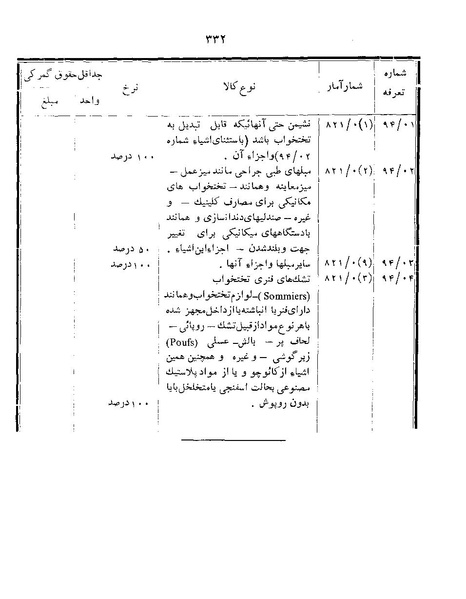 ۳۳۲
شماره تعرفه
شمارآمار
نوع کالا
نرخ
حداقل حقوق گمرکی
واحد
مبلغ
۹۴/۰۱
۸۲۱/۰(۱)
نشیمن حتی آنهائیکه قابل تبدیل به
تختخواب باشد (باستثنای اشیاء شماره
۹۴/۰۲) واجزاء آن .
۱۰۰ درصد
۹۴/۰۲
۸۲۱/۰(۲)
مبلهای طبی جراحی مانند میزعمل –
میزمعاینه وهمانند – تختخواب های
مکانیکی برای مصارف کلینیک – و
غیره – صندلیهای دندانسازی و همانند
بادستگاههای میکانیکی برای تغییر
جهت وبلندشدن – اجزاء این اشیاء .
۵۰ درصد
۹۴/۰۳
۸۲۱/۰(۹)
سایرمبلها واجزاء آنها .
۱۰۰درصد
۹۴/۰۴
۸۲۱/۰(۳)
تشك های فنری تختخواب
(Sommiers) – لوازم تختخواب وهمانند
دارای فنریا انباشته یا ازداخل مجهز شده
باهرنوع مواد ازقبیل تشك – روپائی –
لحاف پر – بالش – عسلی (Poufs)
زیرگوشی – و غیره و همچنین همین
اشیاء ازکائوچو و یا از مواد پلاستیك
مصنوعی بحالت اسفنجی یامتخلخل بایا
بدون روپوش .
۱۰۰درصد